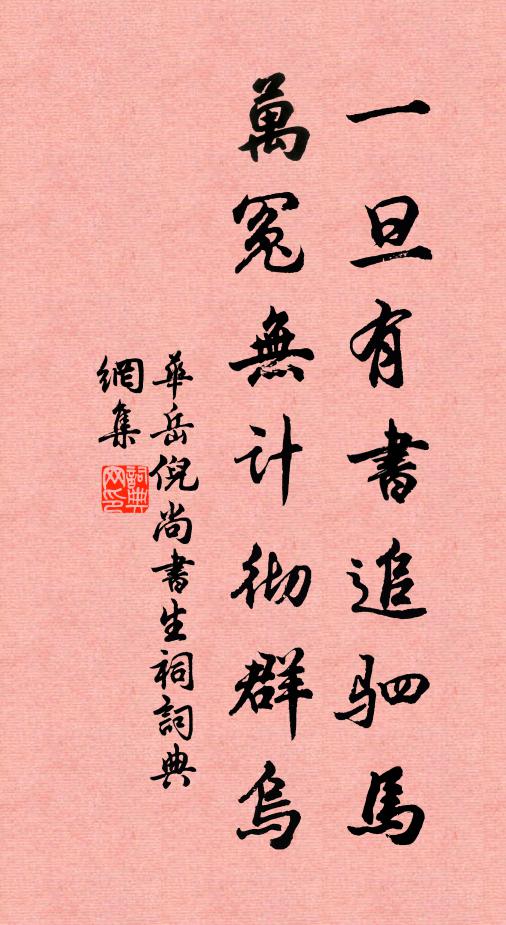 一旦有書追驷馬
萬冤無计彻群烏
華岳倪尚書生祠詞典
網集
詞典
网印